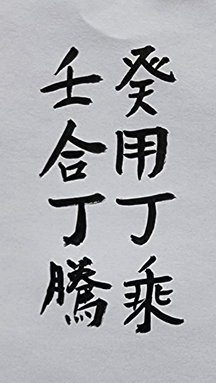 癸用丁乘
壬合丁騰